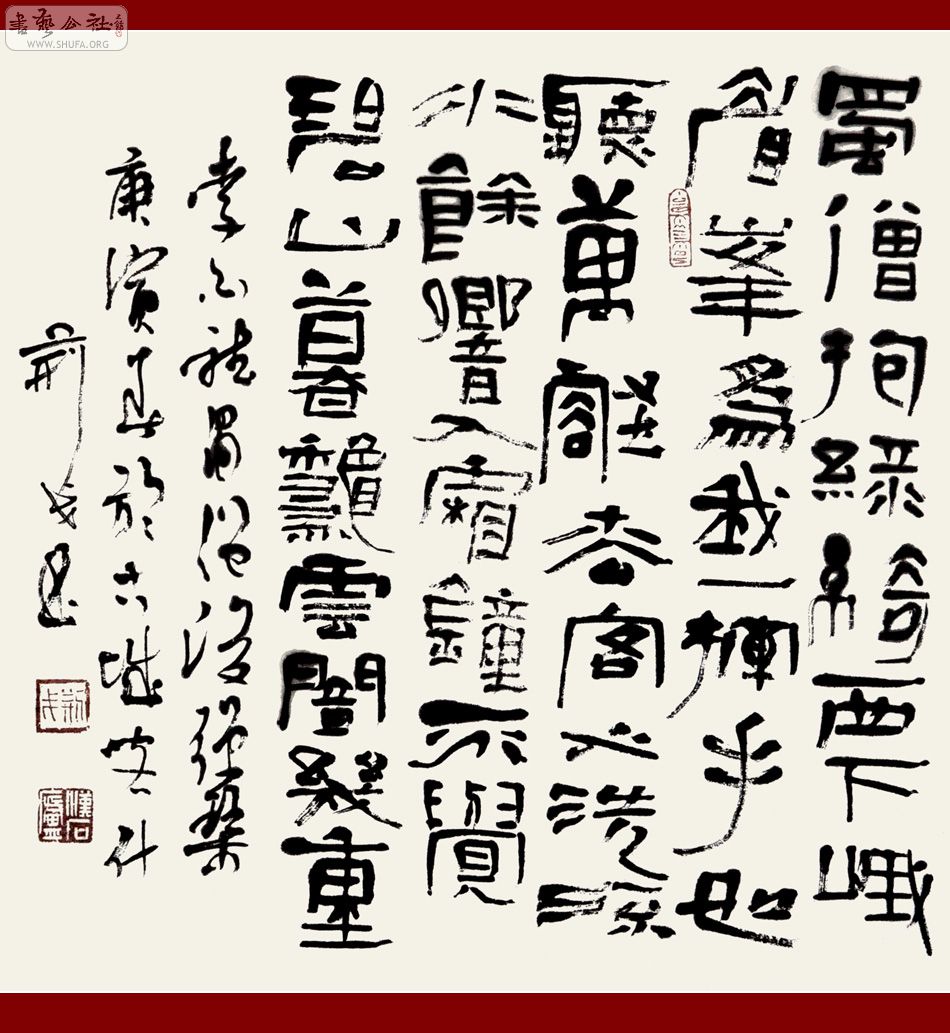 書藝公社
WWW.SHUFA.ORG
蜀僧抱綠綺西下峨
眉峯為我一揮手如
聽萬壑松客心洗流
水餘響入霜鐘不覺
碧山暮龝雲闇幾重
李白聽蜀僧濬彈琴
庚寅春於古城
荊戈書
漢石廬